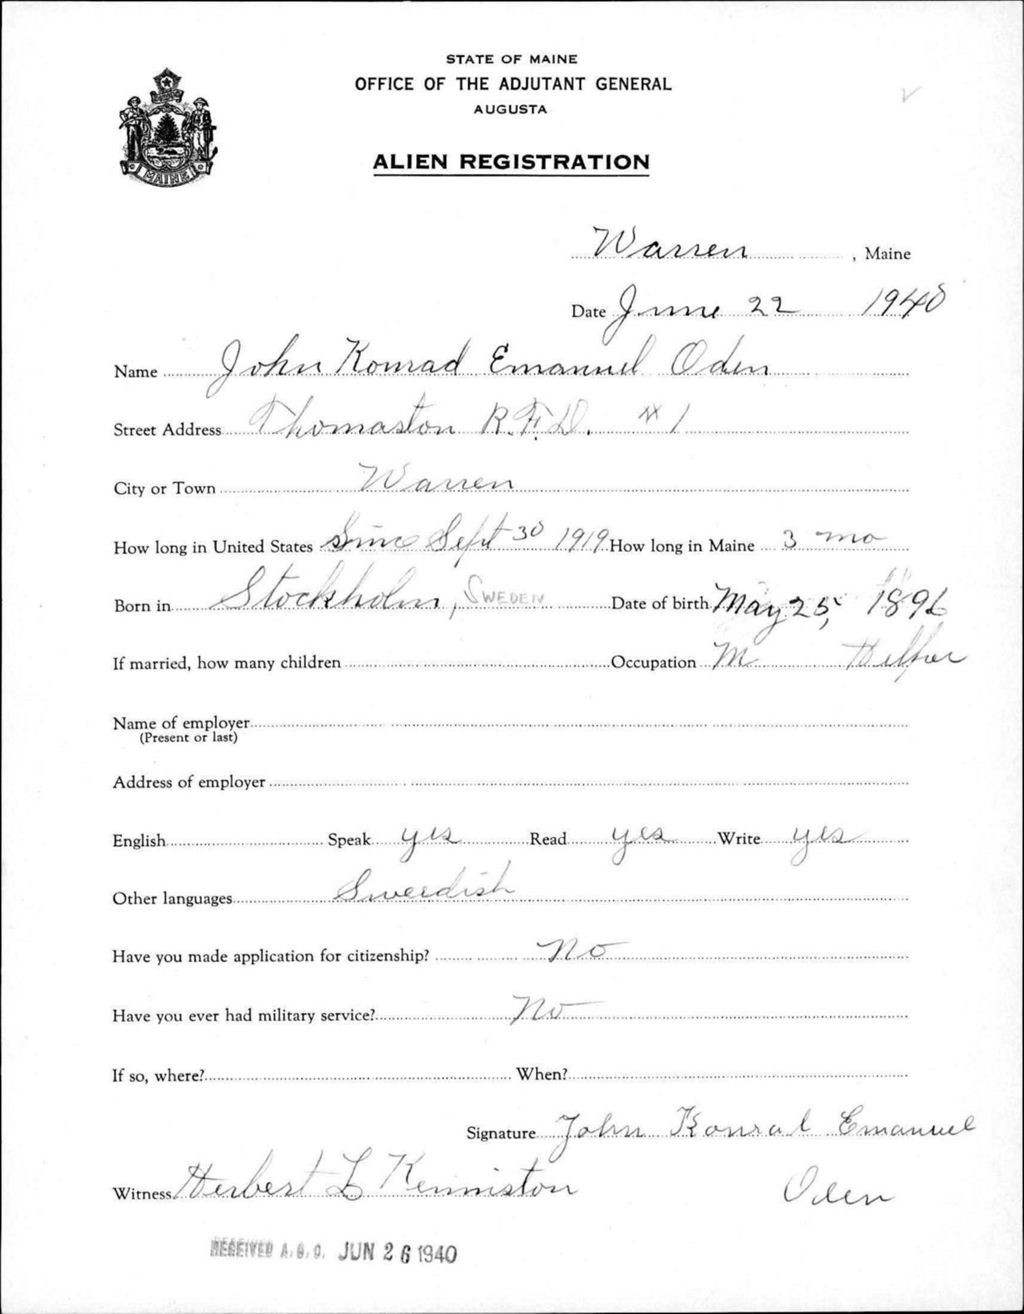 STATE OF MAINE
OFFICE OF THE ADJUTANT GENERAL
AUGUSTA
ALIEN REGISTRATION
MAINE
Warren, Maine
Date June 22 1940
Name John Konrad Emanuel Oden
Street Address Thomaston R.F.D. #1
City or Town Warren
How long in United States Since Sept 30 1919 How long in Maine 3 mo
Born in Stockholm, SWEDEN Date of birth May 25, 1896
If married, how many children Occupation M Helper
Name of employer
(Present or last)
Address of employer
English Speak yes Read yes Write yes
Other languages Sweedish
Have you made application for citizenship? No
Have you ever had military service? No
If so, where? When?
Signature John Konrad Emanuel
Witness Herbert L Kenniston Oden
RECEIVED A.G.O. JUN 26 1940